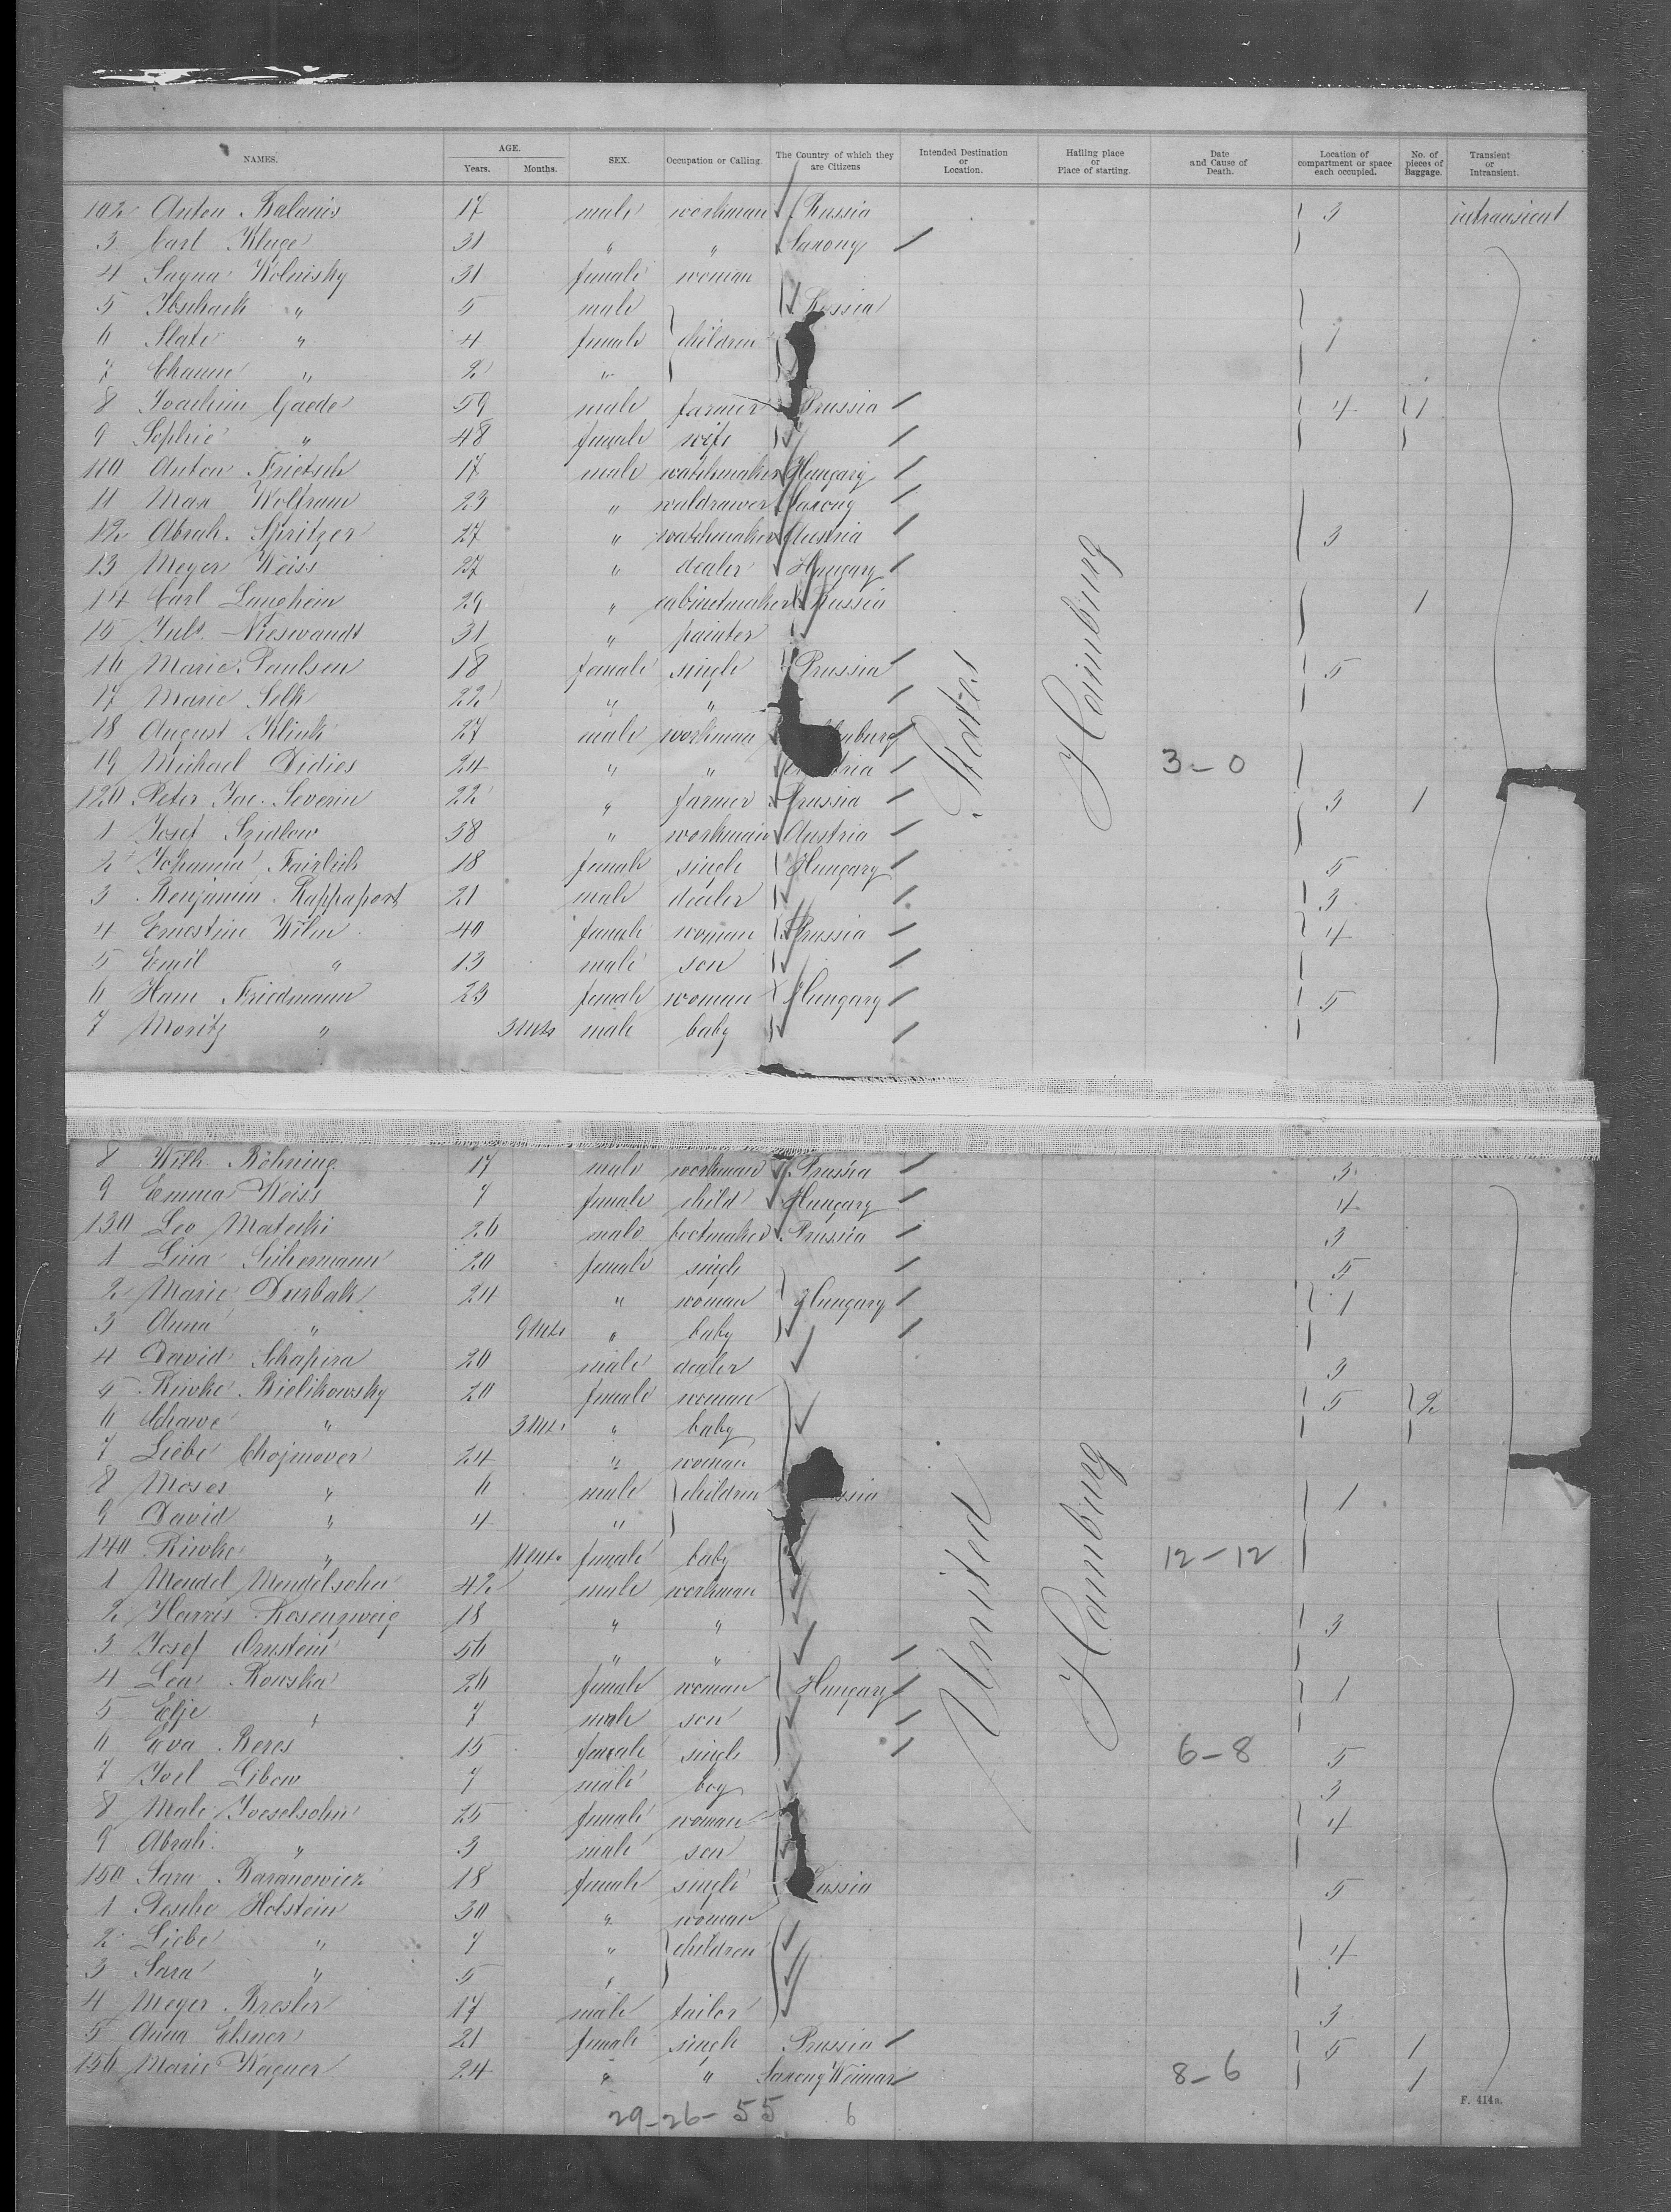 NAMES. AGE. Years. Months. SEX. Occupation or Calling. The Country of which they are Citizens Intended Destination or Location. Hailing place or Place of starting. Date and Cause of Death. Location of compartment or space each occupied. No. of pieces of Baggage. Transient or Intransient.
102 Anton Balanis 17 male workman Russia 3 intransient
3 Carl Kluge 31 " " Saxony
4 31 female woman
5 " 5 male Russia
6 Slate " 4 female children 1
7 Chaune " 2 "
8 Joachim Gaede 59 male farmer Prussia 4 1
9 Sophie " 48 female wife
110 Anton Frietsch 17 male watchmaker Hungary
11 Max Wolfram 23 " Saxony
12 Abrah. Spritzer 27 " watchmaker Austria 3
13 Meyer Weiss 27 " dealer Hungary
14 Carl Langhein 29 " cabinetmaker Russia 1
15 Juls. Nieswandt 31 " painter
16 Marie Paulsen 18 female single Prussia 5
17 Marie Selk 22 " "
18 August Klink 27 male workman
19 Michael Didies 24 " " 3-0
120 Peter Jac. Severin 22 " farmer Prussia 3 1
1 Josef Szidlow 38 " workman Austria
2 Johanna 18 female single Hungary 5
3 Benjamin Rappaport 21 male dealer 3
4 Ernestine Wilm 40 female woman Prussia 4
5 Emil " 13 male son
6 Hani Friedmann 23 female woman Hungary 5
7 Moritz " 3 Mts male baby
States
Hamburg
8 Wilh. Böhning 17 male workman Prussia 3
9 Emma Weiss 7 female child Hungary 4
130 Leo Matecki 26 male bootmaker Prussia 3
1 Lina 20 female single 5
2 Marie Durbak 24 " woman Hungary 1
3 Anna " 9 Mts " baby
4 David Schapira 20 male dealer 3
5 Riwke Bielikowsky 20 female woman 5 2
6 Chawe " 3 Mts " baby
7 Liebe Chojnower 24 " woman
8 Moses " 6 male children 1
9 David " 4 "
140 Riwke " 11 Mts female baby 12-12
1 Mendel Mendelsohn 42 male workman
2 Harris Rosenzweig 18 " " 3
3 Josef Ornstein 56 " "
4 Lea Rouska 26 female woman Hungary 1
5 Elje " 7 male son
6 Eva Beres 15 female single 6-8 5
7 Joel Libow 7 male boy 3
8 Male Joeselsohn 25 female woman 4
9 Abrah. " 3 male son
150 Sara Baranowicz 18 female single Russia 5
1 Pesche Holstein 30 " woman
2 Liebe " 7 " children 4
3 Sara " 5 "
4 Meyer Bresler 17 male tailor 3
5 Anna Elsner 21 female single Prussia 5 1
156 Marie Wagner 24 " " Saxony Weimar 8-6 1
United
Hamburg
29-26-55 6
F. 414a.